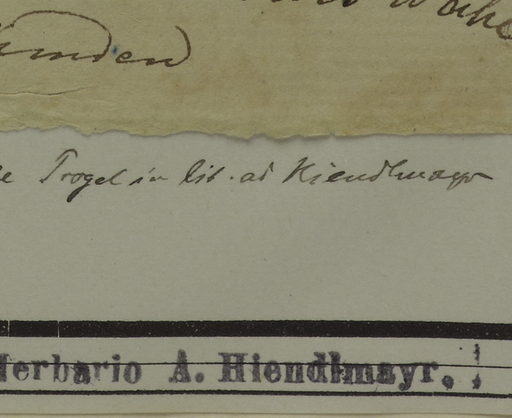 unden
e Trogel in lit. ad Hiendlmayr
Herbario A. Hiendlmayr.